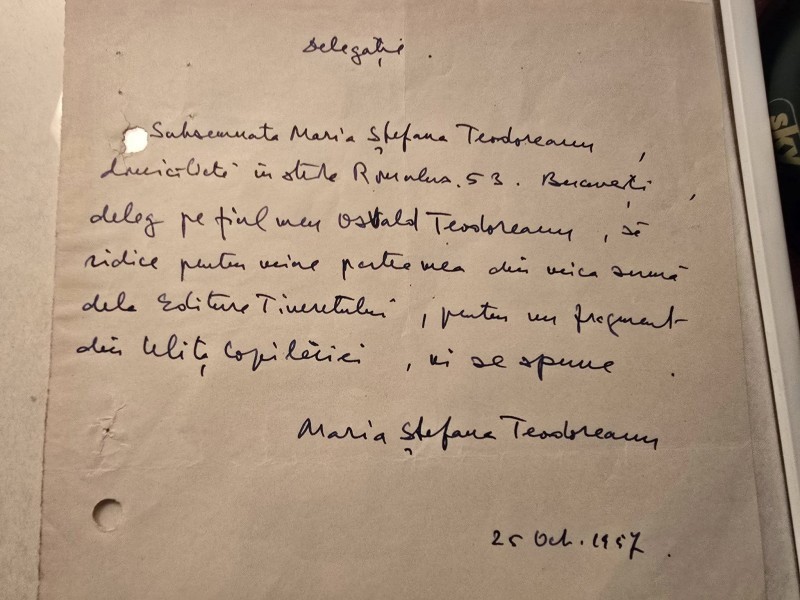 Delegație.
Subsemnata Maria Ștefana Teodoreanu,
domiciliată în strada Romulus. 53. București,
deleg pe fiul meu Osvald Teodoreanu, să
ridice pentru mine partea mea din mica sumă
dela Editura Tineretului, pentru un fragment
din Ulița Copilăriei, mi se spune.
Maria Ștefana Teodoreanu
25 Oct. 1957.
sky